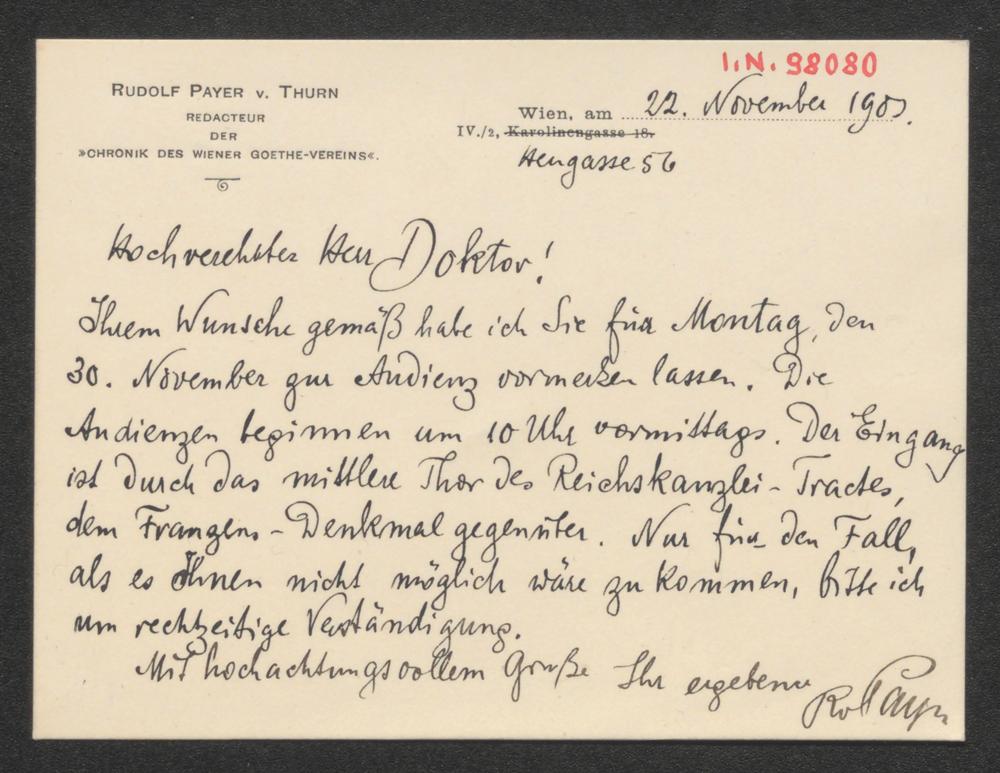 I.N. 98080
RUDOLF PAYER v. THURN
REDACTEUR
DER
»CHRONIK DES WIENER GOETHE-VEREINS«.
Wien, am 22. November 1903.
IV./2, Karolinengasse 18.
Heugasse 56
Hochverehrter Herr Doktor!
Ihrem Wunsche gemäß habe ich Sie für Montag, den
30. November zur Audienz vormerken lassen. Die
Audienzen beginnen um 10 Uhr vormittags. Der Eingang
ist durch das mittlere Thor des Reichskanzlei-Tractes,
dem Franzens-Denkmal gegenüber. Nur für den Fall,
als es Ihnen nicht möglich wäre zu kommen, bitte ich
um rechtzeitige Verständigung.
Mit hochachtungsvollem Gruße Ihr ergebener
RvPayer